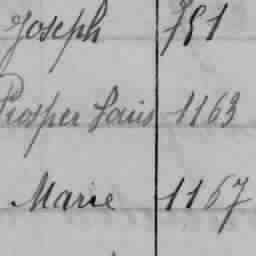 Joseph 751
Prosper Louis 1163
Marie 1167